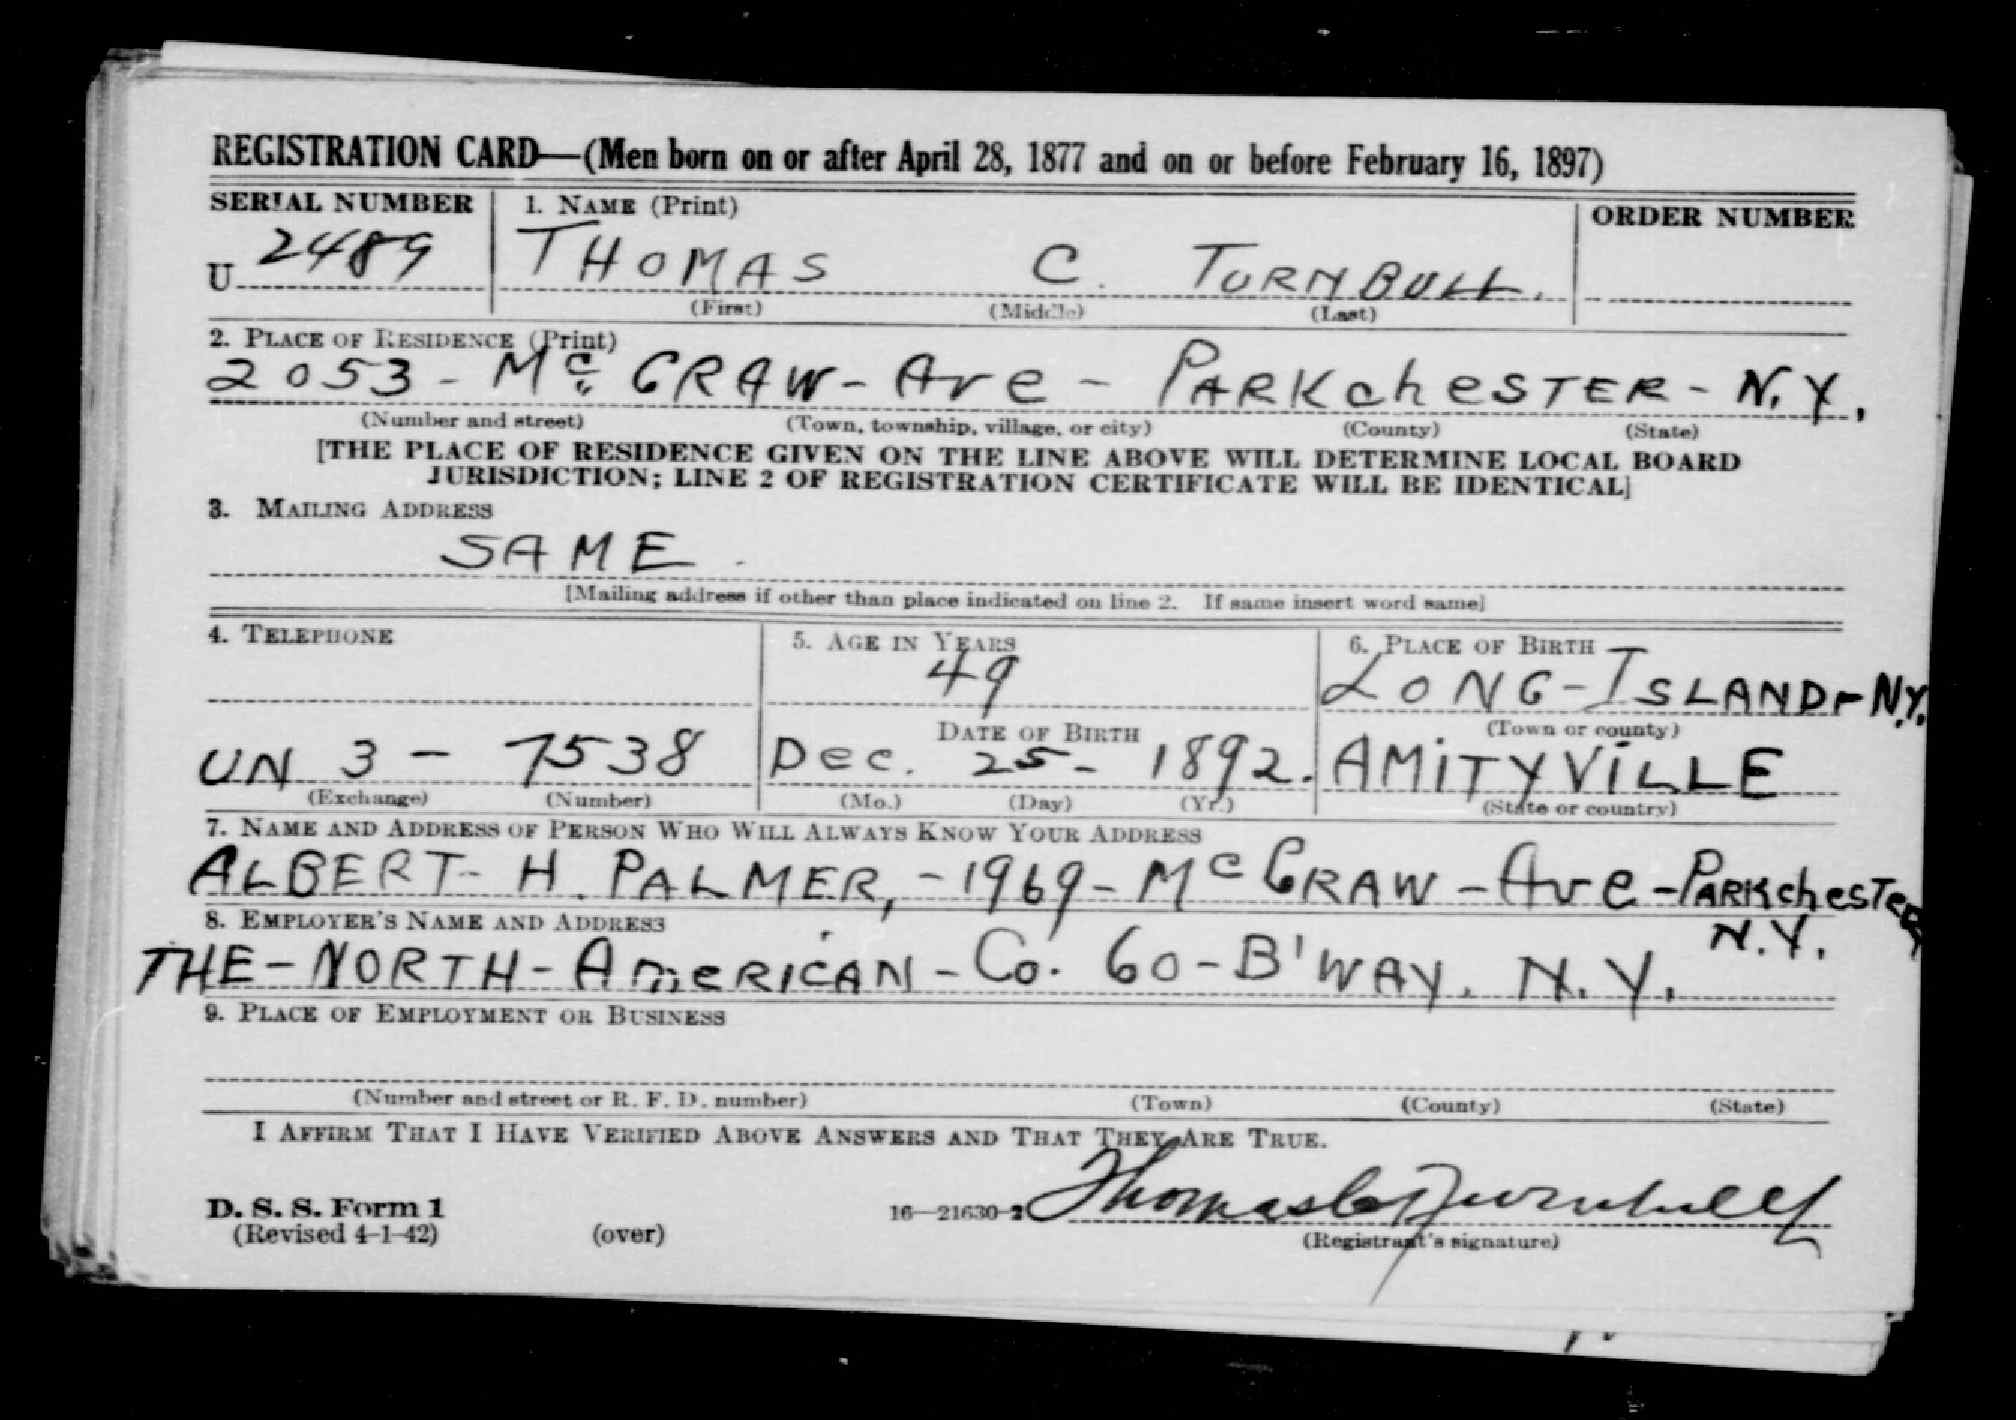 REGISTRATION CARD—(Men born on or after April 28, 1877 and on or before February 16, 1897)
SERIAL NUMBER
1. NAME (Print)
ORDER NUMBER
U 2489
THOMAS C. TURNBULL.
(First) (Middle) (Last)
2. PLACE OF RESIDENCE (Print)
2053 - Mc. GRAW - Ave - PARKchesTER - N.Y.
(Number and street) (Town, township, village, or city) (County) (State)
[THE PLACE OF RESIDENCE GIVEN ON THE LINE ABOVE WILL DETERMINE LOCAL BOARD
JURISDICTION; LINE 2 OF REGISTRATION CERTIFICATE WILL BE IDENTICAL]
3. MAILING ADDRESS
SAME.
[Mailing address if other than place indicated on line 2. If same insert word same]
4. TELEPHONE
5. AGE IN YEARS
6. PLACE OF BIRTH
49
LONG-ISLAND-N.Y.
DATE OF BIRTH
(Town or county)
UN 3 - 7538
Dec. 25 - 1892.
AMiTYViLLE
(Exchange) (Number)
(Mo.) (Day) (Yr.)
(State or country)
7. NAME AND ADDRESS OF PERSON WHO WILL ALWAYS KNOW YOUR ADDRESS
ALBERT - H. PALMER, - 1969 - Mc GRAW - Ave - PARKchesTer
N.Y.
8. EMPLOYER'S NAME AND ADDRESS
THE - NORTH - AmeRICAN - Co. 60 - B'WAY. N.Y.
9. PLACE OF EMPLOYMENT OR BUSINESS
(Number and street or R. F. D. number) (Town) (County) (State)
I AFFIRM THAT I HAVE VERIFIED ABOVE ANSWERS AND THAT THEY ARE TRUE.
D. S. S. Form 1
(Revised 4-1-42) (over)
16—21630-2
Thomas C Turnbull
(Registrant's signature)